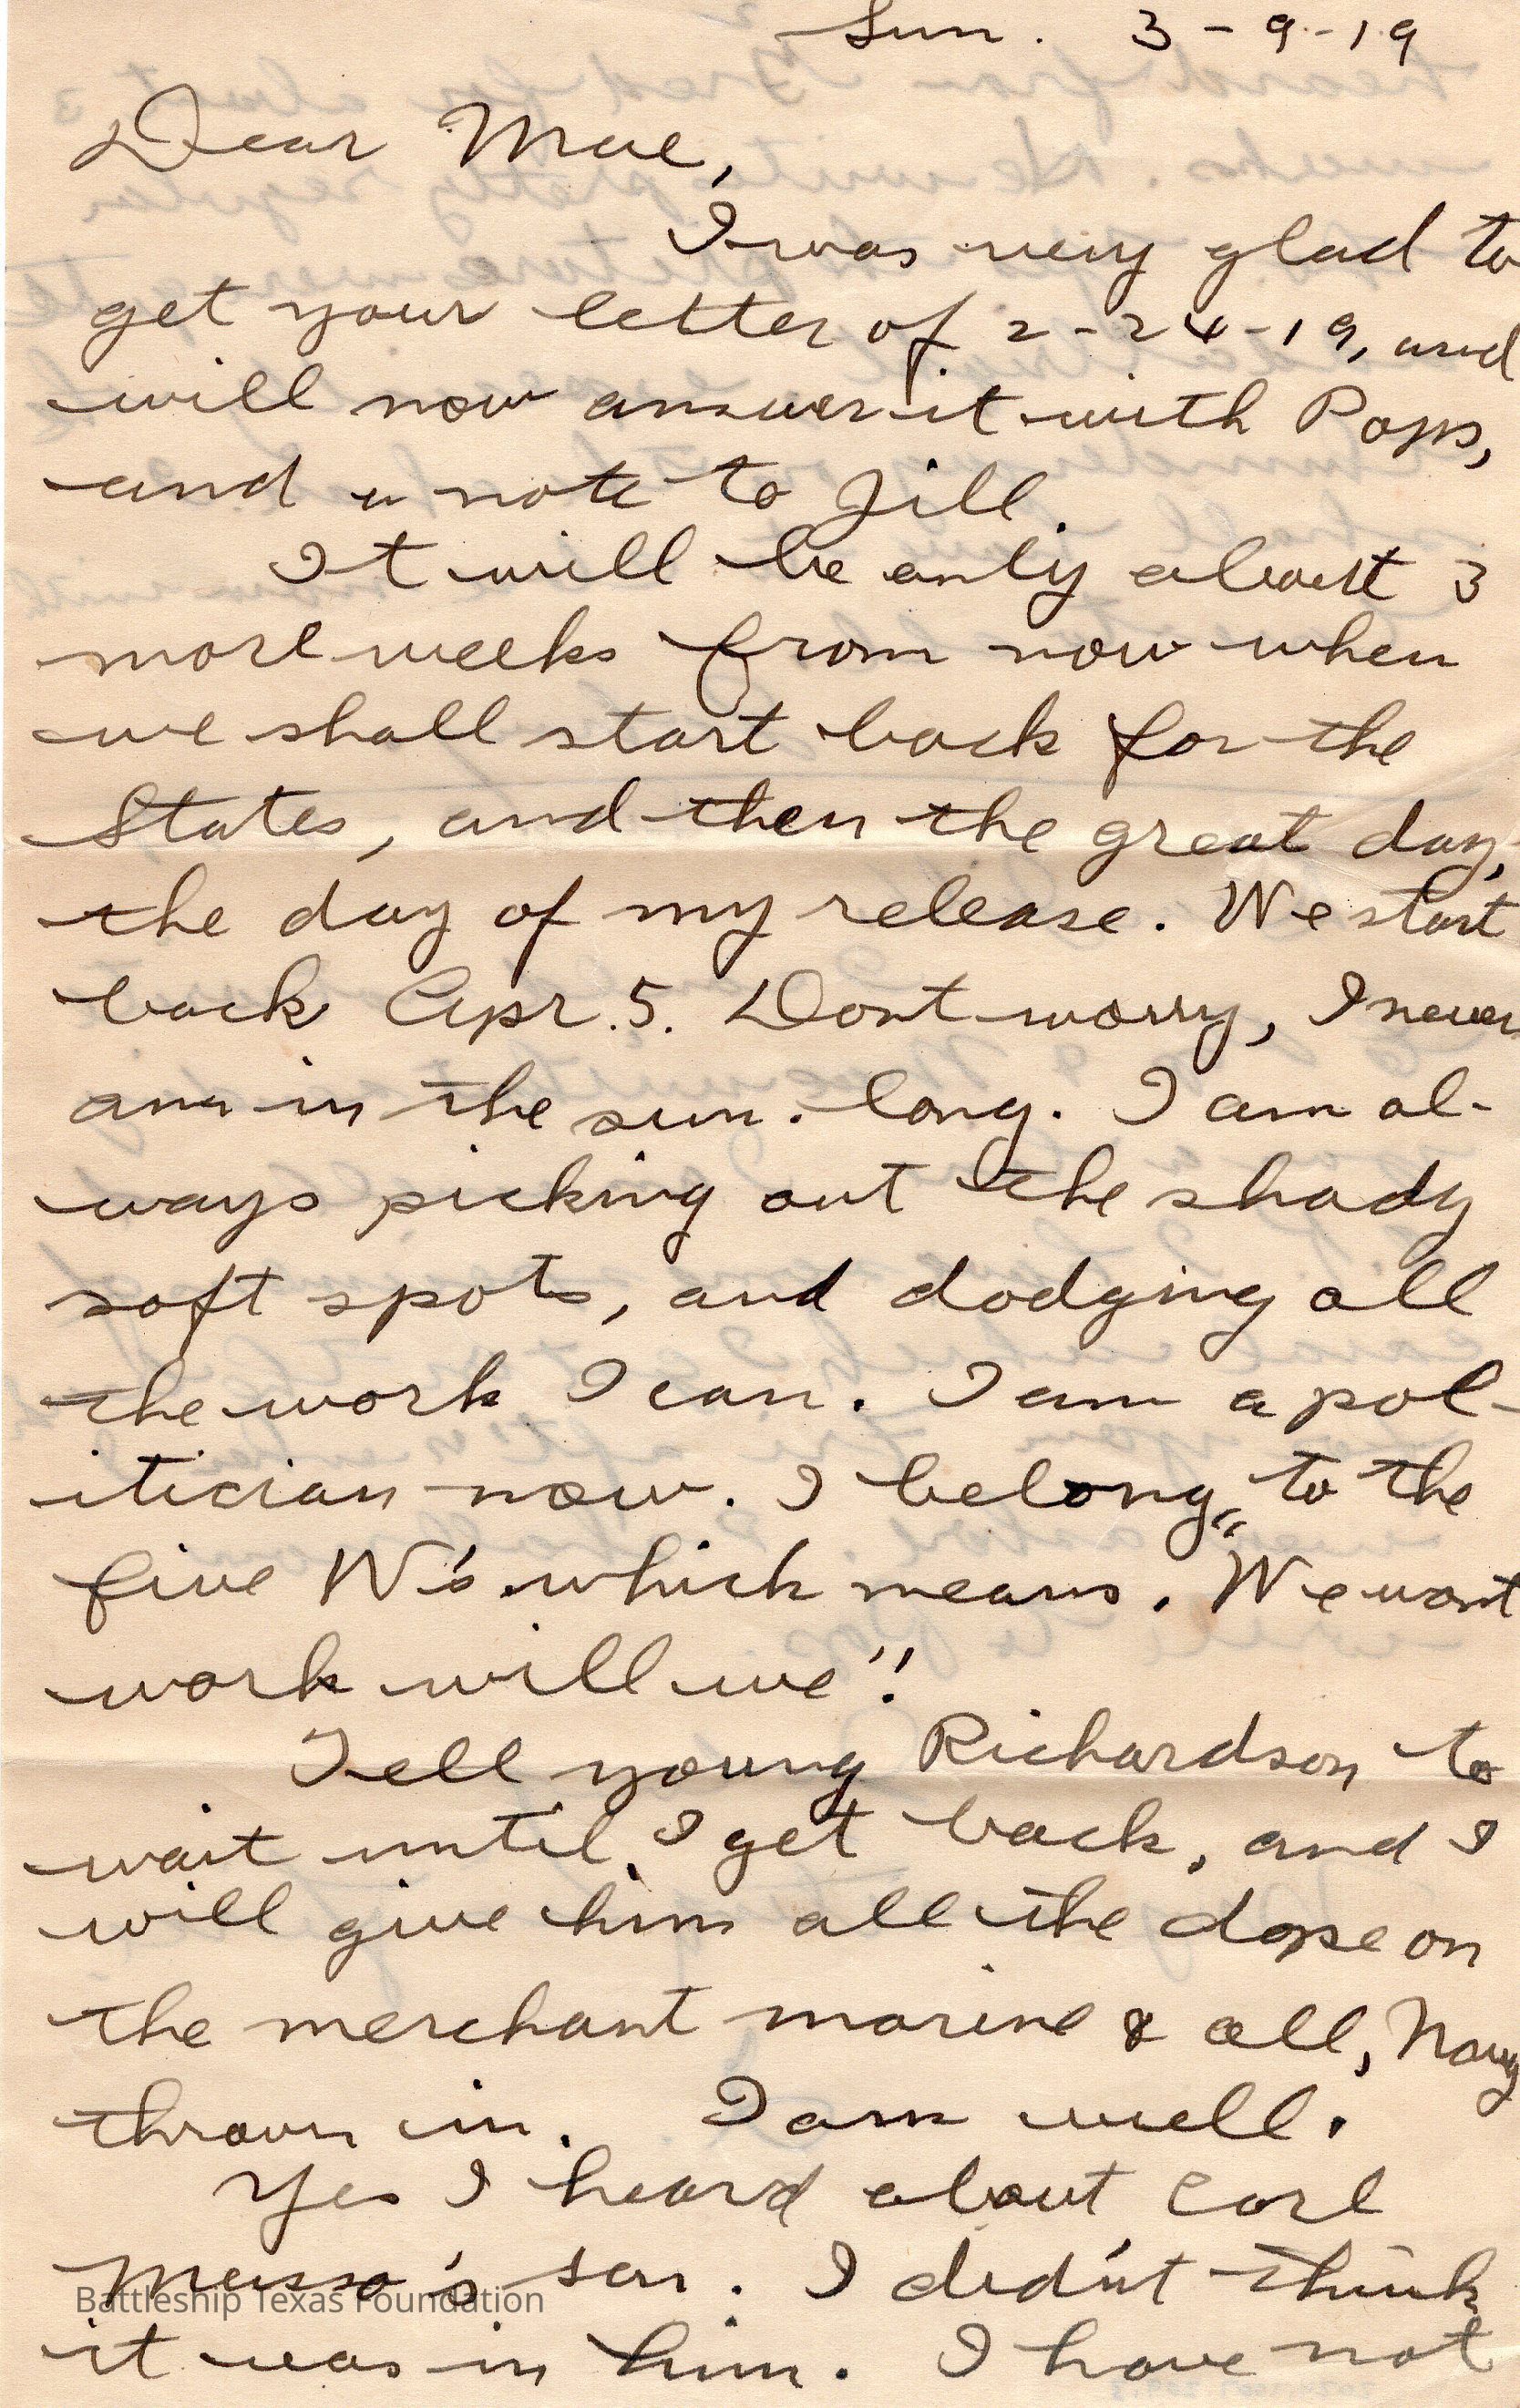 Sun. 3-9-19
Dear Mae,
I was very glad to
get your letter of 2-24-19, and
will now answer it with Pops,
and a note to Jill.
It will be only about 3
more weeks from now when
we shall start back for the
States, and then the great day,
the day of my release. We start
back Apr. 5. Dont worry, I never
am in the sun long. I am al-
ways picking out the shady
soft spots, and dodging all
the work I can. I am a pol-
itician now. I belong to the
five W's which means. "We wont
work will we"!
Tell young Richardson to
wait until I get back, and I
will give him all the dope on
the merchant marine & all, Navy
thrown in. I am well.
Yes I heard about Carl
son. I did'nt think
it was in him. I have not
Battleship Texas Foundation